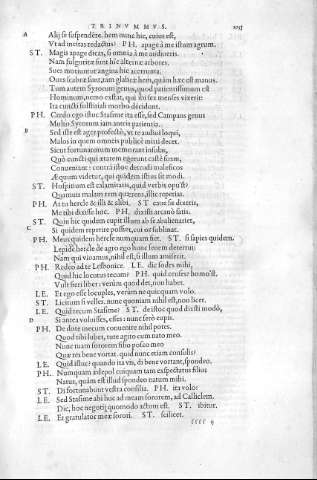 TRINVMMVS.
A Alij se suspendere. hem nunc hic, cuius est,
Vt ad incitas redactus? PH. apage à me istum agrum.
ST. Magis apage dicas, si omnia à me audiueris.
Nam fulguritæ sunt hîc alternæ arbores.
Sues moriuntur angina hîc acerruma.
Oues scabræ sunt, tam glabræ hem, quàm hæc est manus.
Tum autem Syrorum genus, quod patientissimum est
Hominum, nemo extat, qui ibi sex menses vixerit:
Ita cuncti solstitiali morbo decidunt.
PH. Credo ego istuc Stasime ita esse, sed Campans genus
Multo Syrorum iam anteit patientia.
B Sed iste est ager profectò, vt te audiui loqui,
Malos in quem omneis publicè mitti decet.
Sicut fortunatorum memorant insulas,
Quò cuncti qui ætatem egerunt castè suam,
Conueniant: contrà istoc detrudi maleficos
Aequum videtur, qui quidem istius sit modi.
ST. Hospitium est calamitatis, quid verbis opu'st?
Quamuis malam rem quæras, illic reperias.
PH. At tu hercle & illi & alibi. ST. caue sis dixeris,
Me tibi dixisse hoc. PH. dixisti arcanò satis.
ST. Quin hic quidem cupit illum ab se abalienarier,
C Si quidem reperire possit, cui os sublinat.
PH. Meus quidem hercle nunquam fiet. ST. si sapies quidem.
Lepidè hercle de agro ego hunc senem deterrui:
Nam qui viuamus, nihil est, si illum amiserit.
PH. Redeo ad te Lesbonice. LE. dic sodes mihi,
Quid hic locutus tecum? PH. quid censes? homo'st,
Vult fieri liber: verùm quod det, non habet.
LE. Et ego esse locuples, verùm nequicquam volo.
ST. Licitum'st si velles. nunc quoniam nihil est, non licet.
LE. Quid tecum Stasime? ST. de istoc quod dixisti modò,
D Si antea voluisses, esses: nunc serò cupis.
PH. De dote mecum conuenire nihil potes.
Quod tibi lubet, tute agito cum nato meo.
Nunc tuam sororem filio posco meo
Quæ res bene vortat. quid nunc etiam consulis?
LE. Quid istuc? quando ita vis, di bene vortant, spondeo.
PH. Numquam ædepol cuiquam tam expectatus filius
Natus, quàm est illud spondeo natum mihi.
ST. Di fortunabunt vestra consilia. PH. ita volo:
LE. Sed Stasime abi hoc ad meam sororem, ad Calliclem.
Dic, hoc negotij quomodo actum est. ST. ibitur.
LE. Et gratulator meæ sorori. ST. scilicet.